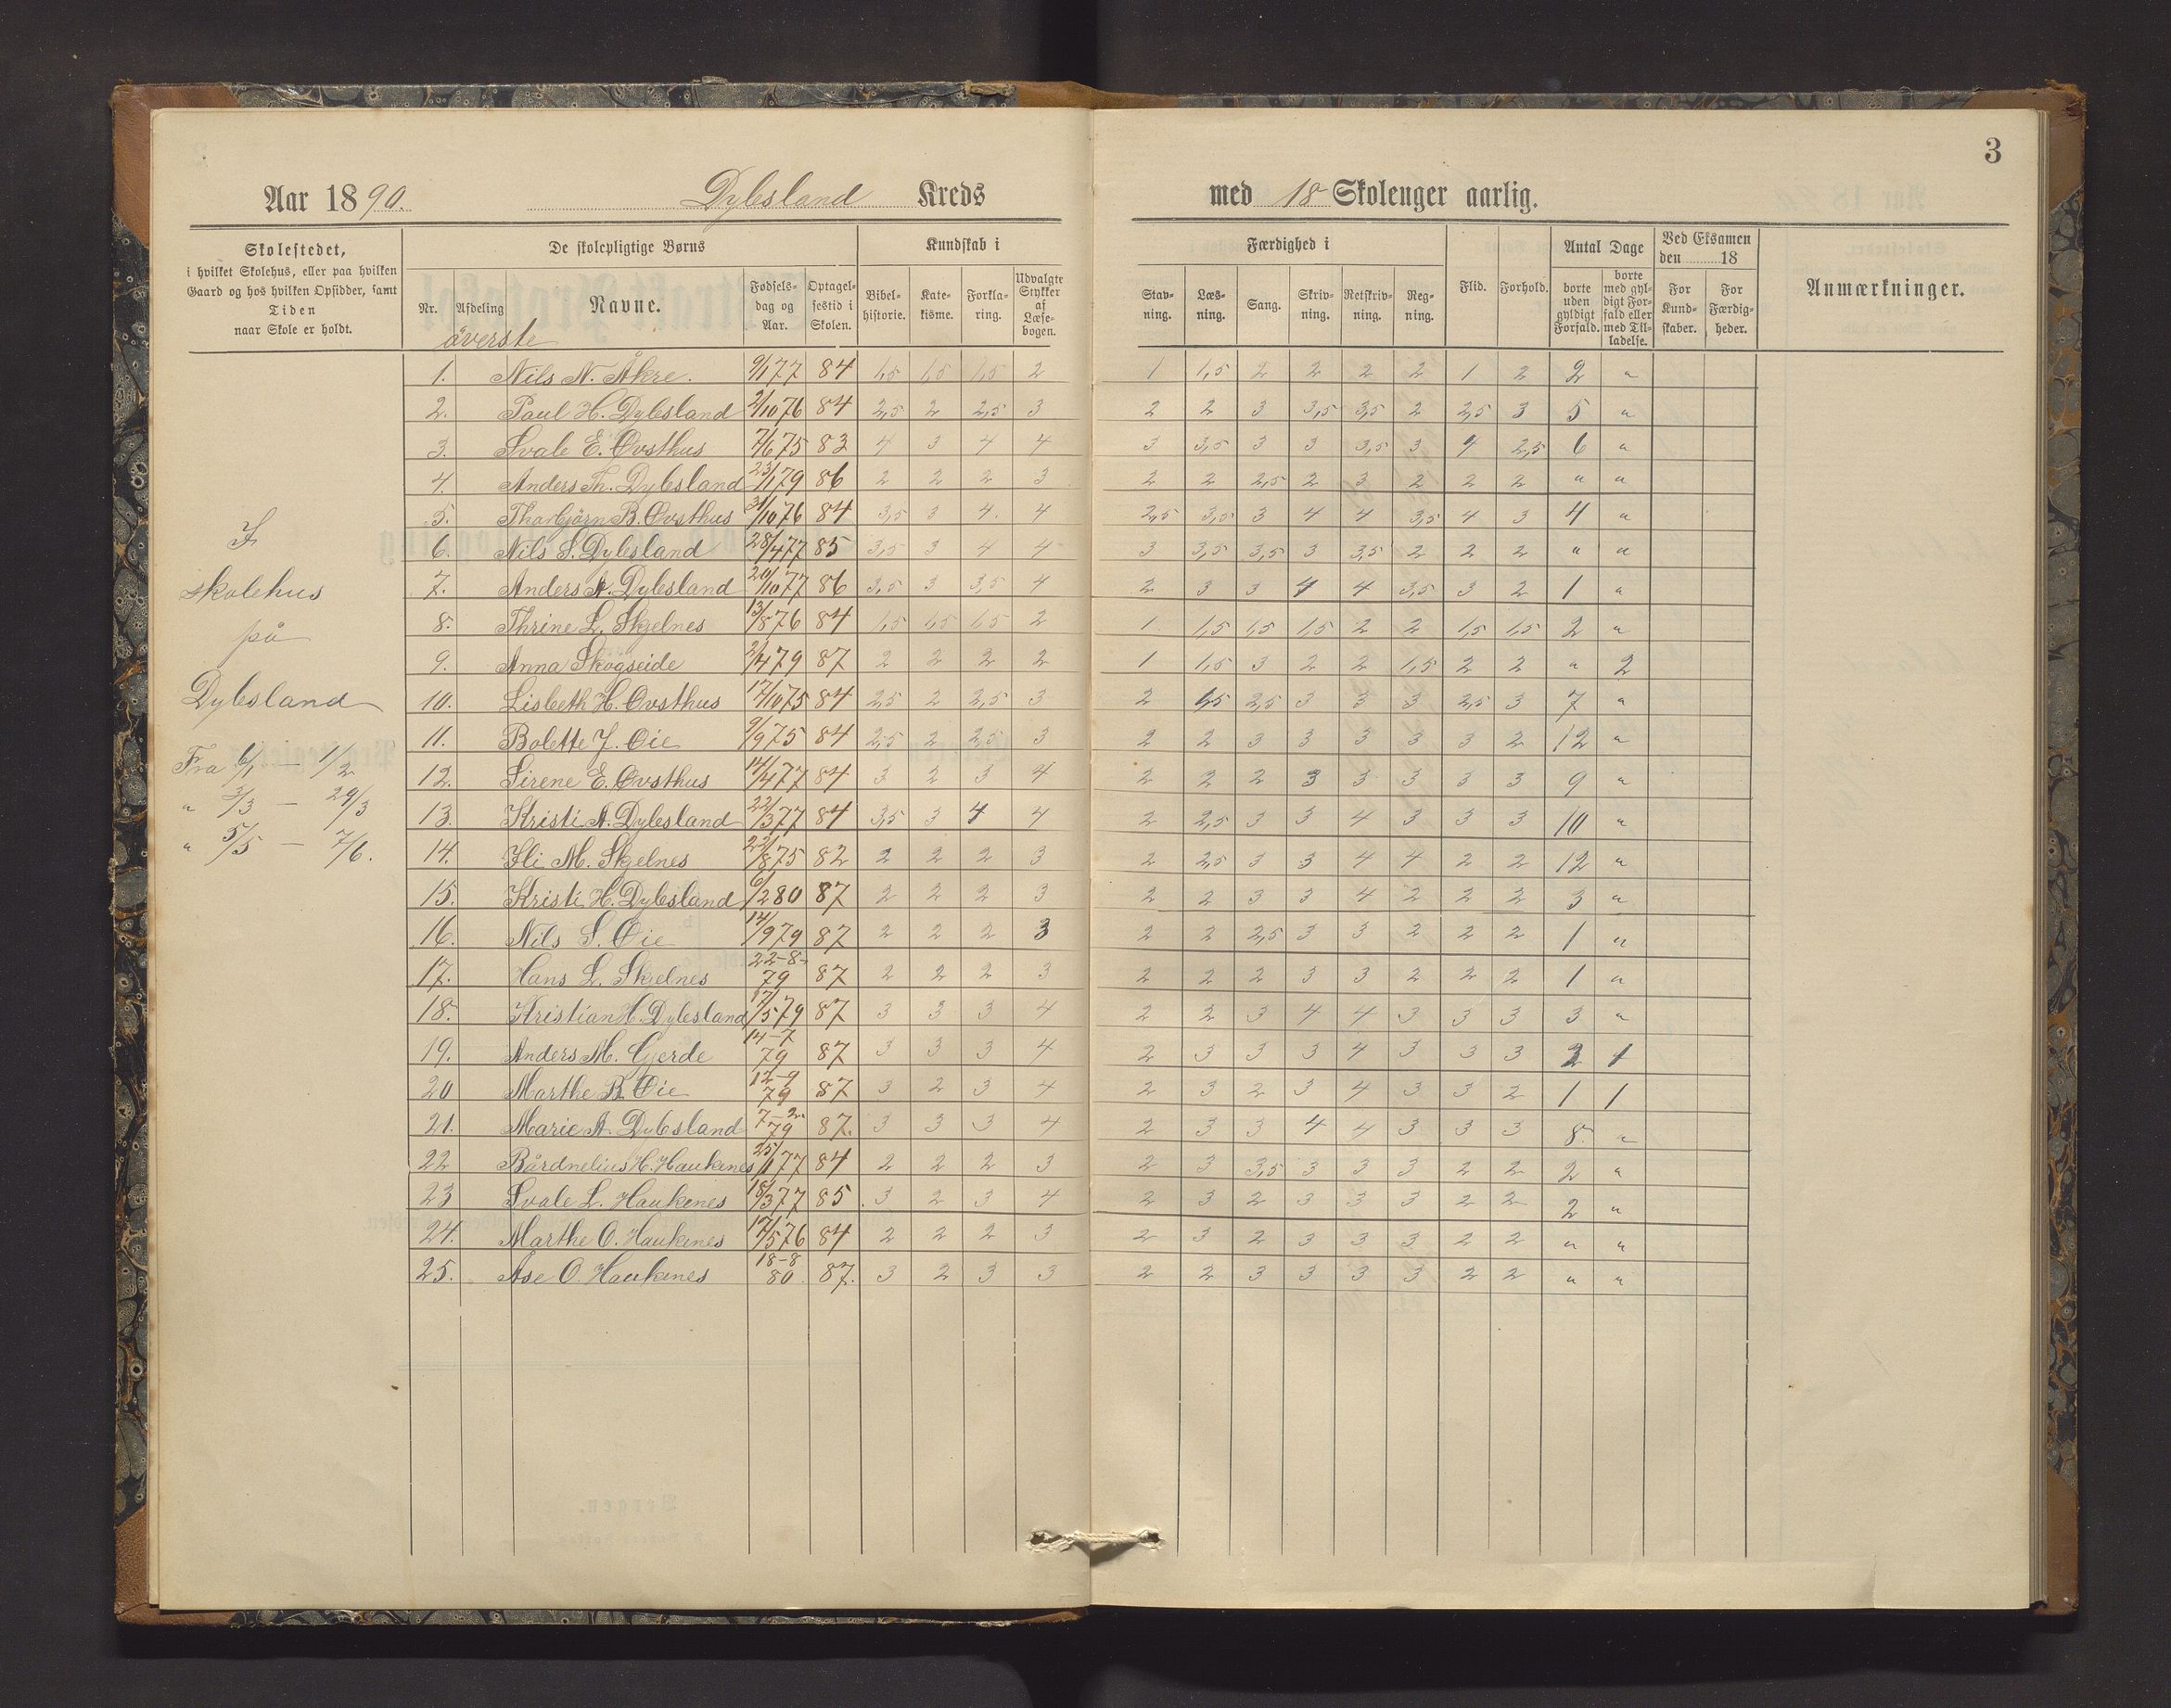 3
Aar 1890. Dylesland Kreds med 18 Skoleuger aarlig.
Skolestedet,
i hvilket Skolehus, eller paa hvilken
Gaard og hos hvilken Opsidder, samt
Tiden
naar Skole er holdt.
De skolepligtige Børns
Nr. Afdeling Navne. Fødsels-dag og Aar. Optagel-sestid i Skolen.
Kundskab i
Bibel-historie. Kate-kisme. Forkla-ring. Udvalgte Stykker af Læse-bogen.
Færdighed i
Stav-ning. Læs-ning. Sang. Skriv-ning. Retskriv-ning. Reg-ning.
Flid. Forhold.
Antal Dage
borte uden gyldigt Forfald. borte med gyl-digt For-fald eller med Til-ladelse.
Ved Eksamen
den 18
For Kund-skaber. For Færdig-heder.
Anmærkninger.
överste
I
skolehus
på
Dylesland
Fra 6/1 — 1/2
" 3/3 — 29/3
" 5/5 — 7/6.
1. Nils N. Åkre. 9/1 77 84 1,5 1,5 1,5 2 1 1,5 2 2 2 2 1 2 2 "
2. Paul H. Dylesland 2/10 76 84 2,5 2 2,5 3 2 2 3 3,5 3,5 2 2,5 3 5 "
3. Svale E. Øvsthus 7/6 75 83 4 3 4 4 3 3,5 3 3 3,5 3 4 2,5 6 "
4. Anders Th. Dylesland 23/1 79 86 2 2 2 3 2 2 2,5 2 3 2 2 2 " "
5. Thorbjörn B. Øvsthus 31/10 76 84 3,5 3 4. 4 2,5 3,5 3 4 4 3,5 4 3 4 "
6. Nils S. Dylesland 28/4 77 85 3,5 3 4 4 3 3,5 3,5 3 3,5 2 2 2 " "
7. Anders A. Dylesland 20/10 77 86 3,5 3 3,5 4 2 3 3 4 4 3,5 3 2 1 "
8. Thrine L. Skjelnes 13/8 76 84 1,5 1,5 1,5 2 1 1,5 1,5 1,5 2 2 1,5 1,5 2 "
9. Anna Skogseide 2/4 79 87 2 2 2 2 1 1,5 3 2 2 1,5 2 2 " 2
10. Lisbeth H. Øvsthus 17/10 75 84 2,5 2 2,5 3 2 1,5 2,5 3 3 3 2,5 3 7 "
11. Bolette J. Øie 9/9 75 84 2,5 2 2,5 3 2 2 3 3 3 3 3 2 12 "
12. Sirene E. Øvsthus 14/4 77 84 3 2 3 4 2 2 2 3 3 3 3 3 9 "
13. Kristi A. Dylesland 22/3 77 84 3,5 3 4 4 2 2,5 3 3 4 3 3 3 10 "
14. Ili M. Skjelnes 22/8 75 82 2 2 2 3 2 2,5 3 3 4 4 2 2 12 "
15. Kristi H. Dylesland 6/2 80 87 2 2 2 3 2 2 3 3 4 2 2 2 3 "
16. Nils S. Øie 14/9 79 87 2 2 2 3 2 2 2,5 3 3 2 2 2 1 "
17. Hans L. Skjelnes 22-8-79 87 2 2 2 3 2 2 2 3 3 2 2 2 1 "
18. Kristian H. Dylesland 17/5 79 87 3 3 3 4 2 2 3 4 4 3 3 3 3 "
19. Anders M. Gjerde 14-7 79 87 3 3 3 4 2 3 3 3 4 3 3 3 2 1
20 Marthe B. Øie 12-9 79 87 3 2 3 4 2 3 2 3 4 3 3 2 1 1
21. Marie A. Dylesland 7-2 79 87. 3 3 3 4 2 3 3 4 4 3 3 3 8. "
22 Bårdnelius H. Haukenes 25/1 77 84 2 2 2 3 2 3 3,5 3 3 3 2 2 2 "
23 Svale L. Haukenes 18/3 77 85 3 2 3 4 2 3 2 3 3 3 2 2 2 "
24. Marthe O. Haukenes 17/5 76 84 2 2 2 3 2 3 2 3 3 3 2 2 " "
25. Åse O. Haukenes 18-8 80 87. 3 2 3 3 2 2 3 3 3 3 2 2 " "